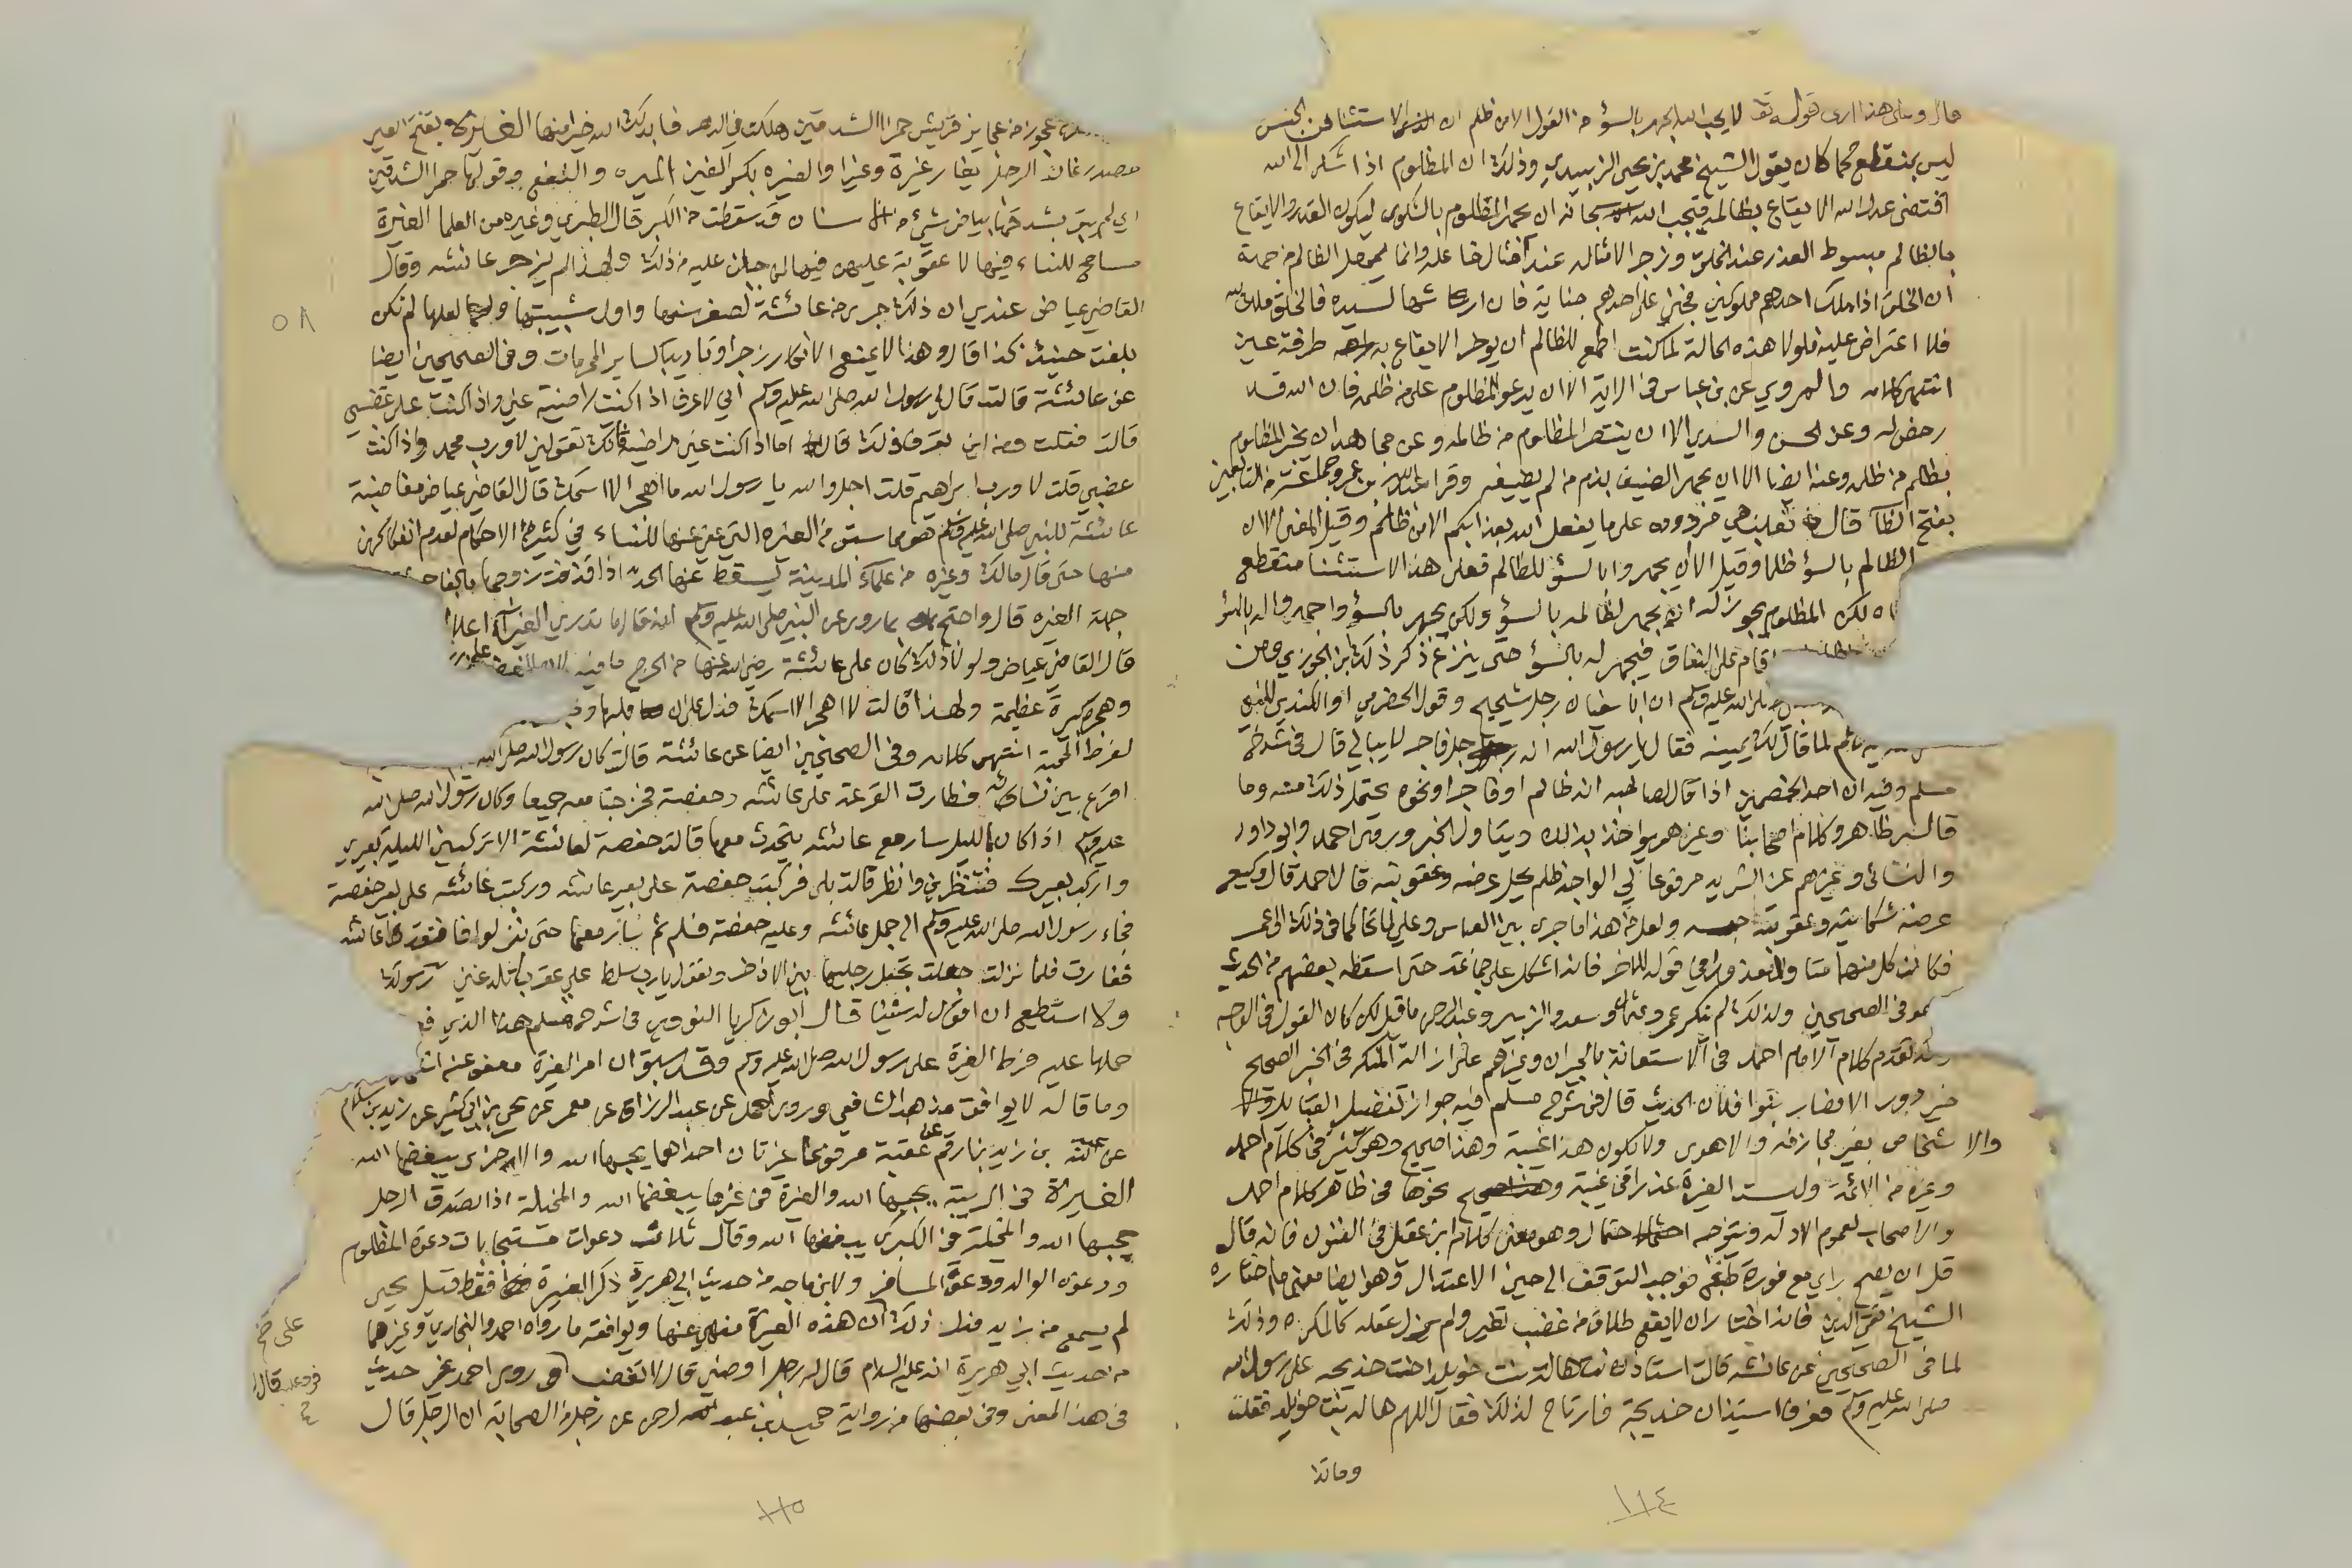 قال وعلى هذا ارى قوله تعا لا يحب الله الجهر بالسؤ من القول الا من ظلم ان الاستثنا من الجنس
ليس بمنقطع كما كان يقول الشيخ محمد بن يحيى الزبيدي وذلك ان المظلوم اذا اشتكى الى الله
اقتضى عدل الله الايقاع بظالمه فيحب الله سبحانه ان يجهر المظلوم بالشكوى ليكون القدر والايقاع
بالظالم مبسوط العذر عند الخلق وزجر الامثاله عند افشال فعله وانما يحصل الظالم من جهة
ان الخلق اذا ملك احدهم مملوكين فجنى على احدهم جناية فان ارشها لسيده فالخلق ملك لله
فلا اعتراض عليه فلولا هذه الحالة لما كنت اطمع للظالم ان يوخر الايقاع به طرفة عين
انتهى كلامه والمروي عن بن عباس في الاية الا ان يدعو المظلوم على من ظلمه فان الله قد
رخص له وعن الحسن والسدي الا ان ينتصر المظلوم من ظالمه وعن مجاهد ان يخبر المظلوم
بظلم من ظلمه وعنه ايضا الا ان يجهر الضيف بذم من لم يضيفه وقرا عبد الله بن عمرو وجماعة من التابعين
بفتح الظا قال ثعلب هي مردودة على ما يفعل الله بعذابكم الا من ظلم وقيل المعنى الا ان
الظالم بالسؤ ظلما وقيل الا ان يجهروا بالسؤ للظالم فعلى هذا الاستثنا منقطع
لكن المظلوم يجوز له ان يجهر لظالمه بالسؤ ولكن يجهر بالسؤ واجهروا له بالسؤ
اقام على النفاق فيجهر له بالسؤ حتى ينزع ذكر ذلك ابن الجوزي ومن
صلى الله عليه وسلم ان ابا سفيان رجل شحيح وقول الحضرمي او الكندي للنبي
لما قال لك يمينه فقال يا رسول الله انه رجل فاجر لا يبالي قال في شرح
مسلم وفيه ان احد الخصمين اذا قال لصاحبه انه ظالم او فاجر او نحوه يحتمل ذلك منه وما
قاله ظاهر وكلام اصحابنا وغيرهم يواخذ بذلك ويتاول الخبر وروى احمد وابو داود
والنسائي وغيرهم عن الشريد مرفوعا لي الواجد ظلم يحل عرضه وعقوبته قال احمد قال وكيع
عرضه شكايته وعقوبته حبسه ولعل من هذا ما جرى بين العباس وعلي لما تحاكما في ذلك الى عمر
فكانت كل منهما قوله للاخر فانه اشكل على جماعة حتى اسقطه بعضهم من الحديث
وهو في الصحيحين ولذلك لم ينكر عمر وعثمان وسعد والزبير وعبد الرحمن ما قيل لكن كان القول في الوجه
وقد تقدم كلام الامام احمد في الاستعانة بالجيران وغيرهم على ازالة المنكر في الخبر الصحيح
خير دور الانصار بنوا فلان الحديث قال في شرح مسلم فيه جواز تفضيل القبائل
والاشخاص بغير مجازفة ولا هوى ولا يكون هذا غيبة وهذا صحيح وهو كثير في كلام احمد
وغيره من الائمة وليست الغيرة عذرا في غيبة ونحوها في ظاهر كلام احمد
والاصحاب لعموم الادلة ويتوجه احتمال وهو معنى كلام ابن عقيل في الفنون فانه قال
قل ان يصح راي مع فورة طبع فوجب التوقف الى حين الاعتدال وهو ايضا معنى ما اختاره
الشيخ تقي الدين فانه اختار ان لا يقع طلاق من غضب تغير ولم يزل عقله كالمكره وذلك
لما في الصحيحين عن عائشة قالت استاذنت هالة بنت خويلد اخت خديجة على رسول الله
صلى الله عليه وسلم فعرف استيذان خديجة فارتاح لذلك فقال اللهم هالة بنت خويلد فقلت
وما تذ
١١٤
عجوز من عجايز قريش حمرا الشدقين هلكت في الدهر فابدلك الله خيرا منها الغيرة بفتح الغين
مصدر غار الرجل يغار غيرة وغيرا والغيرة بكسر الغين الميره والنفع وقولها حمرا الشدقين
اي لم يبق بشدقها بياض شيء من الاسنان قد سقطت من الكبر قال الطبري وغيره من العلما الغيرة
مسامح للنساء فيها لا عقوبة عليهن فيها لما جبلن عليه من ذلك ولهذا لم يزجر عائشه وقال
القاضي عياض عندي ان ذلك جرى من عائشة لصغر سنها واول شبيبتها ولعلها لم تكن
بلغت حينئذ كذا قال وهذا لا يمنع الانكار زجرا وتاديبا كساير المحرمات وفي الصحيحين ايضا
عن عائشة قالت قال لي رسول الله صلى الله عليه وسلم اني لاعرف اذا كنت راضية عني واذا كنت علي غضبي
قالت فقلت ومن اين تعرف ذلك قال اما اذا كنت عني راضية فانك تقولين لا ورب محمد واذا كنت
غضبي قلت لا ورب ابراهيم قلت اجل والله يا رسول الله ما اهجر الا اسمك قال القاضي عياض مغاضبة
عائشة للنبي صلى الله عليه وسلم هو مما سبق من الغيرة التي عفي عنها للنساء في كثير من الاحكام لعدم انفكاكهن
منها حتى قال مالك وغيره من علماء المدينة يسقط عنها الحد اذا قذفت زوجها بالفاحشة
جهة الغيرة قال واحتج بما روى عن النبي صلى الله عليه وسلم انه قال ما تدري الغيرا اعلا
قال القاضي عياض ولولا ذلك لكان على عائشة رضي الله عنها من الحرج ما فيه
وهجره كبيرة عظيمة ولهذا قالت لا اهجر الا اسمك فدل على ان قلبها
لفرط المحبة انتهى كلامه وفي الصحيحين ايضا عن عائشة قالت كان رسول الله صلى الله
اقرع بين نسائه فطارت القرعة على عائشة وحفصة فخرجتا معه جميعا وكان رسول الله صلى الله
عليه وسلم اذا كان بالليل سار مع عائشه يتحدث معها قالت حفصة لعائشة الا تركبين الليلة بعيري
واركب بعيرك فتنظرين وانظر قالت بلى فركبت حفصة على بعير عائشه وركبت عائشه على بعير حفصة
فجاء رسول الله صلى الله عليه وسلم الى جمل عائشه وعليه حفصة فسلم ثم سار معها حتى نزلوا فافتقدتها عائشه
فغارت فلما نزلت جعلت تجعل رجليها بين الاذخر وتقول يا رب سلط علي عقربا تلدغني رسولك
ولا استطيع ان اقول له شيئا قال ابو زكريا النووي في شرح مسلم هذا الذي
حملها عليه فرط الغيرة على رسول الله صلى الله عليه وسلم وقد سبق ان امر الغيرة معفو عنه
وما قاله لا يوافق مذهب الشافعي وروى احمد عن عبد الرزاق عن معمر عن يحيى بن ابي كثير عن زيد بن سلام
عن عبد الله بن زيد بن ازرق عن عقبة مرفوعا غيرتان احداهما يحبها الله والاخرى يبغضها الله
الغيرة في الريبة يحبها الله والغيرة في غيرها يبغضها الله والمخيلة اذا تصدق الرجل
يحبها الله والمخيلة في الكبر يبغضها الله وقال ثلاث دعوات مستجابات دعوة المظلوم
ودعوة الوالد ودعوة المسافر ولابن ماجه من حديث ابي هريرة ذكر الغيرة فقط قيل يحيى
لم يسمع من زيد فدل ذلك ان هذه الغيرة منهي عنها ويوافقه ما رواه احمد والبخاري وغيرهما
من حديث ابي هريرة انه عليه السلام قال له رجل اوصني قال لا تغضب وروى احمد غير حديث
في هذا المعنى وفي بعضها من رواية حميد بن عبد الرحمن عن رجل من الصحابة ان الرجل قال
١١٥
٥٨